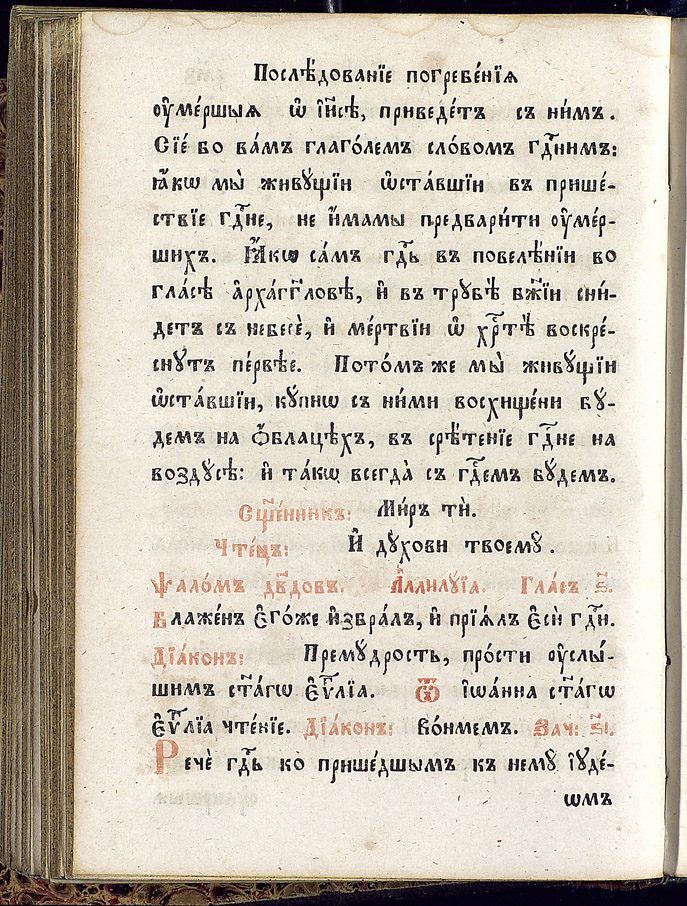 Послѣ́дованїе погребе́нїѧ
ᲂу҆ме́ршыѧ ѡ҆ і҆и҃сѣ, приведе́тъ съ ни́мъ.
Сїе́ бо ва́мъ глаго́лемъ сло́вомъ гдⷭ҇нимъ:
ꙗ҆́кѡ мы̀ живꙋ́щїи ѡ҆ста́вшїи въ прише́-
ствїе гдⷭ҇не, не и҆́мамы предвари́ти ᲂу҆ме́р-
шихъ. Ꙗ҆́кѡ са́мъ гдⷭ҇ь въ повелѣ́нїи во
гла́сѣ а҆рха́гг҃ловѣ, и҆ въ трꙋбѣ̀ бж҃їи сни́-
детъ съ небесѐ, и҆ ме́ртвїи ѡ҆ хрⷭ҇тѣ̀ воскре́-
снутъ пе́рвѣе. Пото́мъ же мы̀ живꙋ́щїи
ѡ҆ста́вшїи, кꙋ́пнѡ съ ни́ми восхище́ни бꙋ́-
демъ на ѻ҆́блацѣхъ, въ срѣ́тенїе гдⷭ҇не на
воздꙋсѣ: и҆ та́кѡ всегда̀ съ гдⷭ҇емъ бꙋ́демъ.
Сщ҃е́нникъ: Ми́ръ тѝ.
Чте́цъ: И҆ дꙋ́хови твоемꙋ̀.
Ѱало́мъ дв҃довъ. А҆ллилꙋ́їа. Гла́съ ѕ҃.
Блаже́нъ є҆го́же и҆збра́лъ, и҆ прїѧ́лъ є҆сѝ гдⷭ҇и.
Дїа́конъ: Премꙋ́дрость, про́сти ᲂу҆слы́-
шимъ ст҃а́гѡ є҆ѵⷢ҇лїа. Ѿ і҆ѡа́нна ст҃а́гѡ
є҆ѵⷢ҇лїа чте́нїе. Дїа́конъ: Во́нмемъ. Зач: ѕ҃і.
Речѐ гдⷭ҇ь ко прише́дшымъ къ немꙋ̀ і҆ꙋде́-
ѡмъ